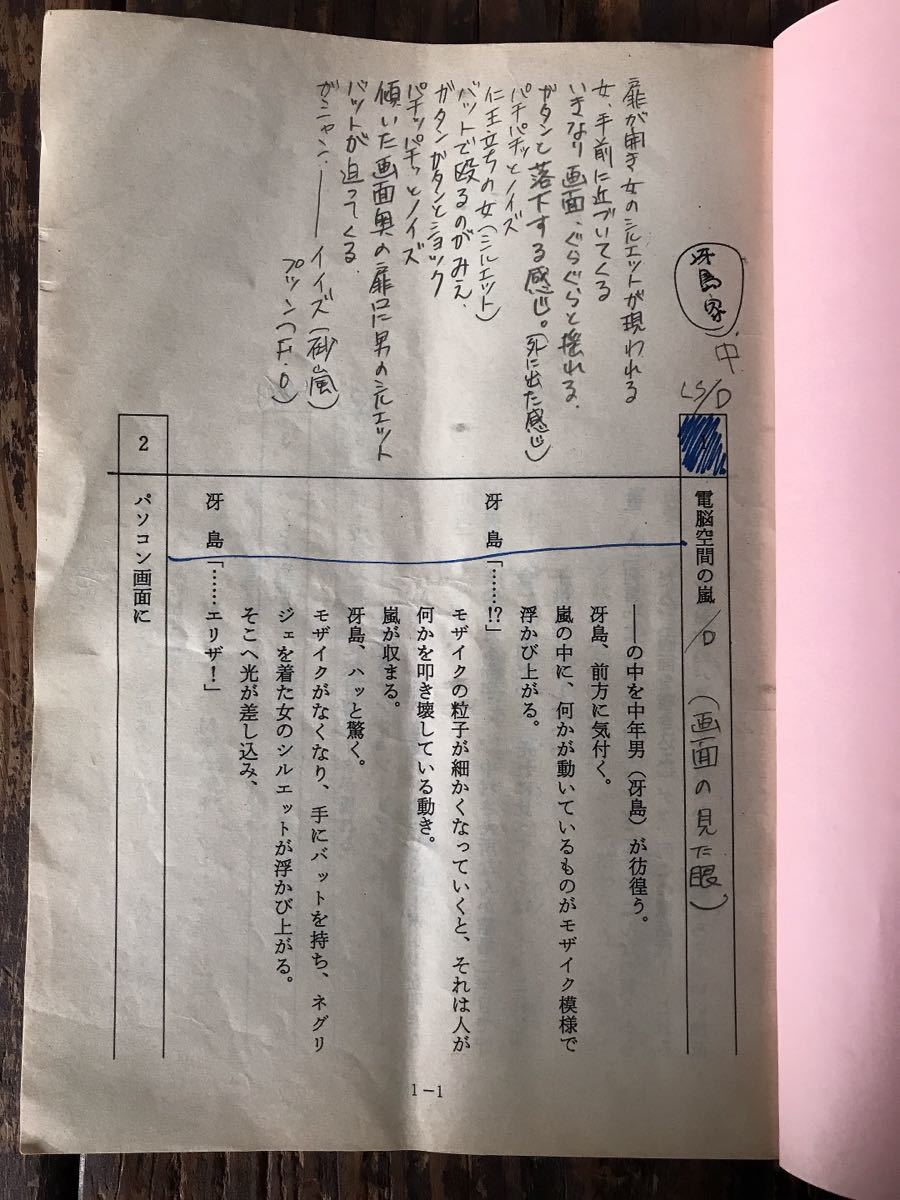 冴島家
中
LS/D
扉が開き女のシルエットが現われる
女、手前に近づいてくる
いきなり画面、ぐらぐらと揺れる、
ガタンと落下する感じ。(外に出た感じ)
パチパチッとノイズ
仁王立ちの女(シルエット)
バットで殴るのがみえ、
ガタンガタンとショック
パチッパチッとノイズ
傾いた画面奥の扉口に男のシルエット
バットが迫ってくる
ガニャン.――イイズ(砂嵐)
プツン(F.O)
電脳空間の嵐 /D (画面の見た眼)
――の中を中年男(冴島)が彷徨う。
冴島、前方に気付く。
嵐の中に、何かが動いているものがモザイク模様で
浮かび上がる。
冴島「……!?」
モザイクの粒子が細かくなっていくと、それは人が
何かを叩き壊している動き。
嵐が収まる。
冴島、ハッと驚く。
モザイクがなくなり、手にバットを持ち、ネグリ
ジェを着た女のシルエットが浮かび上がる。
そこへ光が差し込み、
冴島「……エリザ!」
2 パソコン画面に
1-1